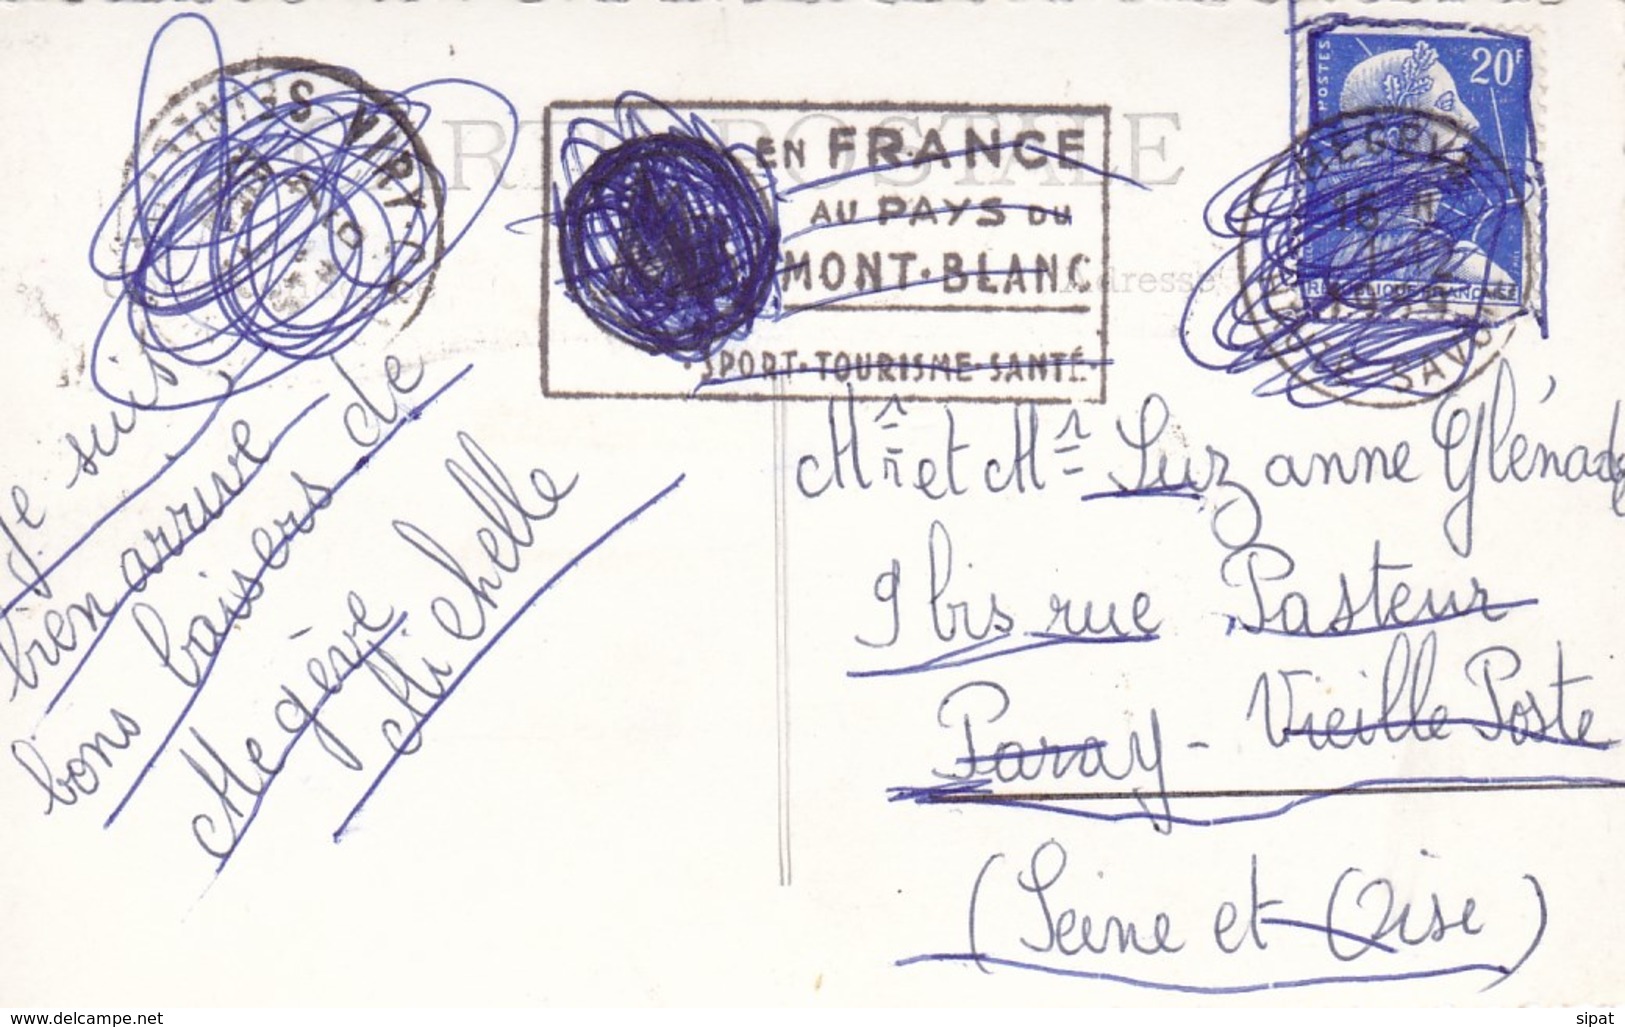 CARTE POSTALE
EN FRANCE
AU PAYS DU
MONT-BLANC
SPORT-TOURISME-SANTÉ
POSTES
20F
RÉPUBLIQUE FRANÇAISE
MEGÈVE
16 H
1-12
1959
HAUTE SAVOIE
VIRY
Adresse
Je suis
bien arrivé
bons baisers de
Megève
Michelle
Mr et Me Suzanne Glénade
9 bis rue Pasteur
Paray - Vieille Poste
(Seine et Oise)
www.delcampe.net
sipat